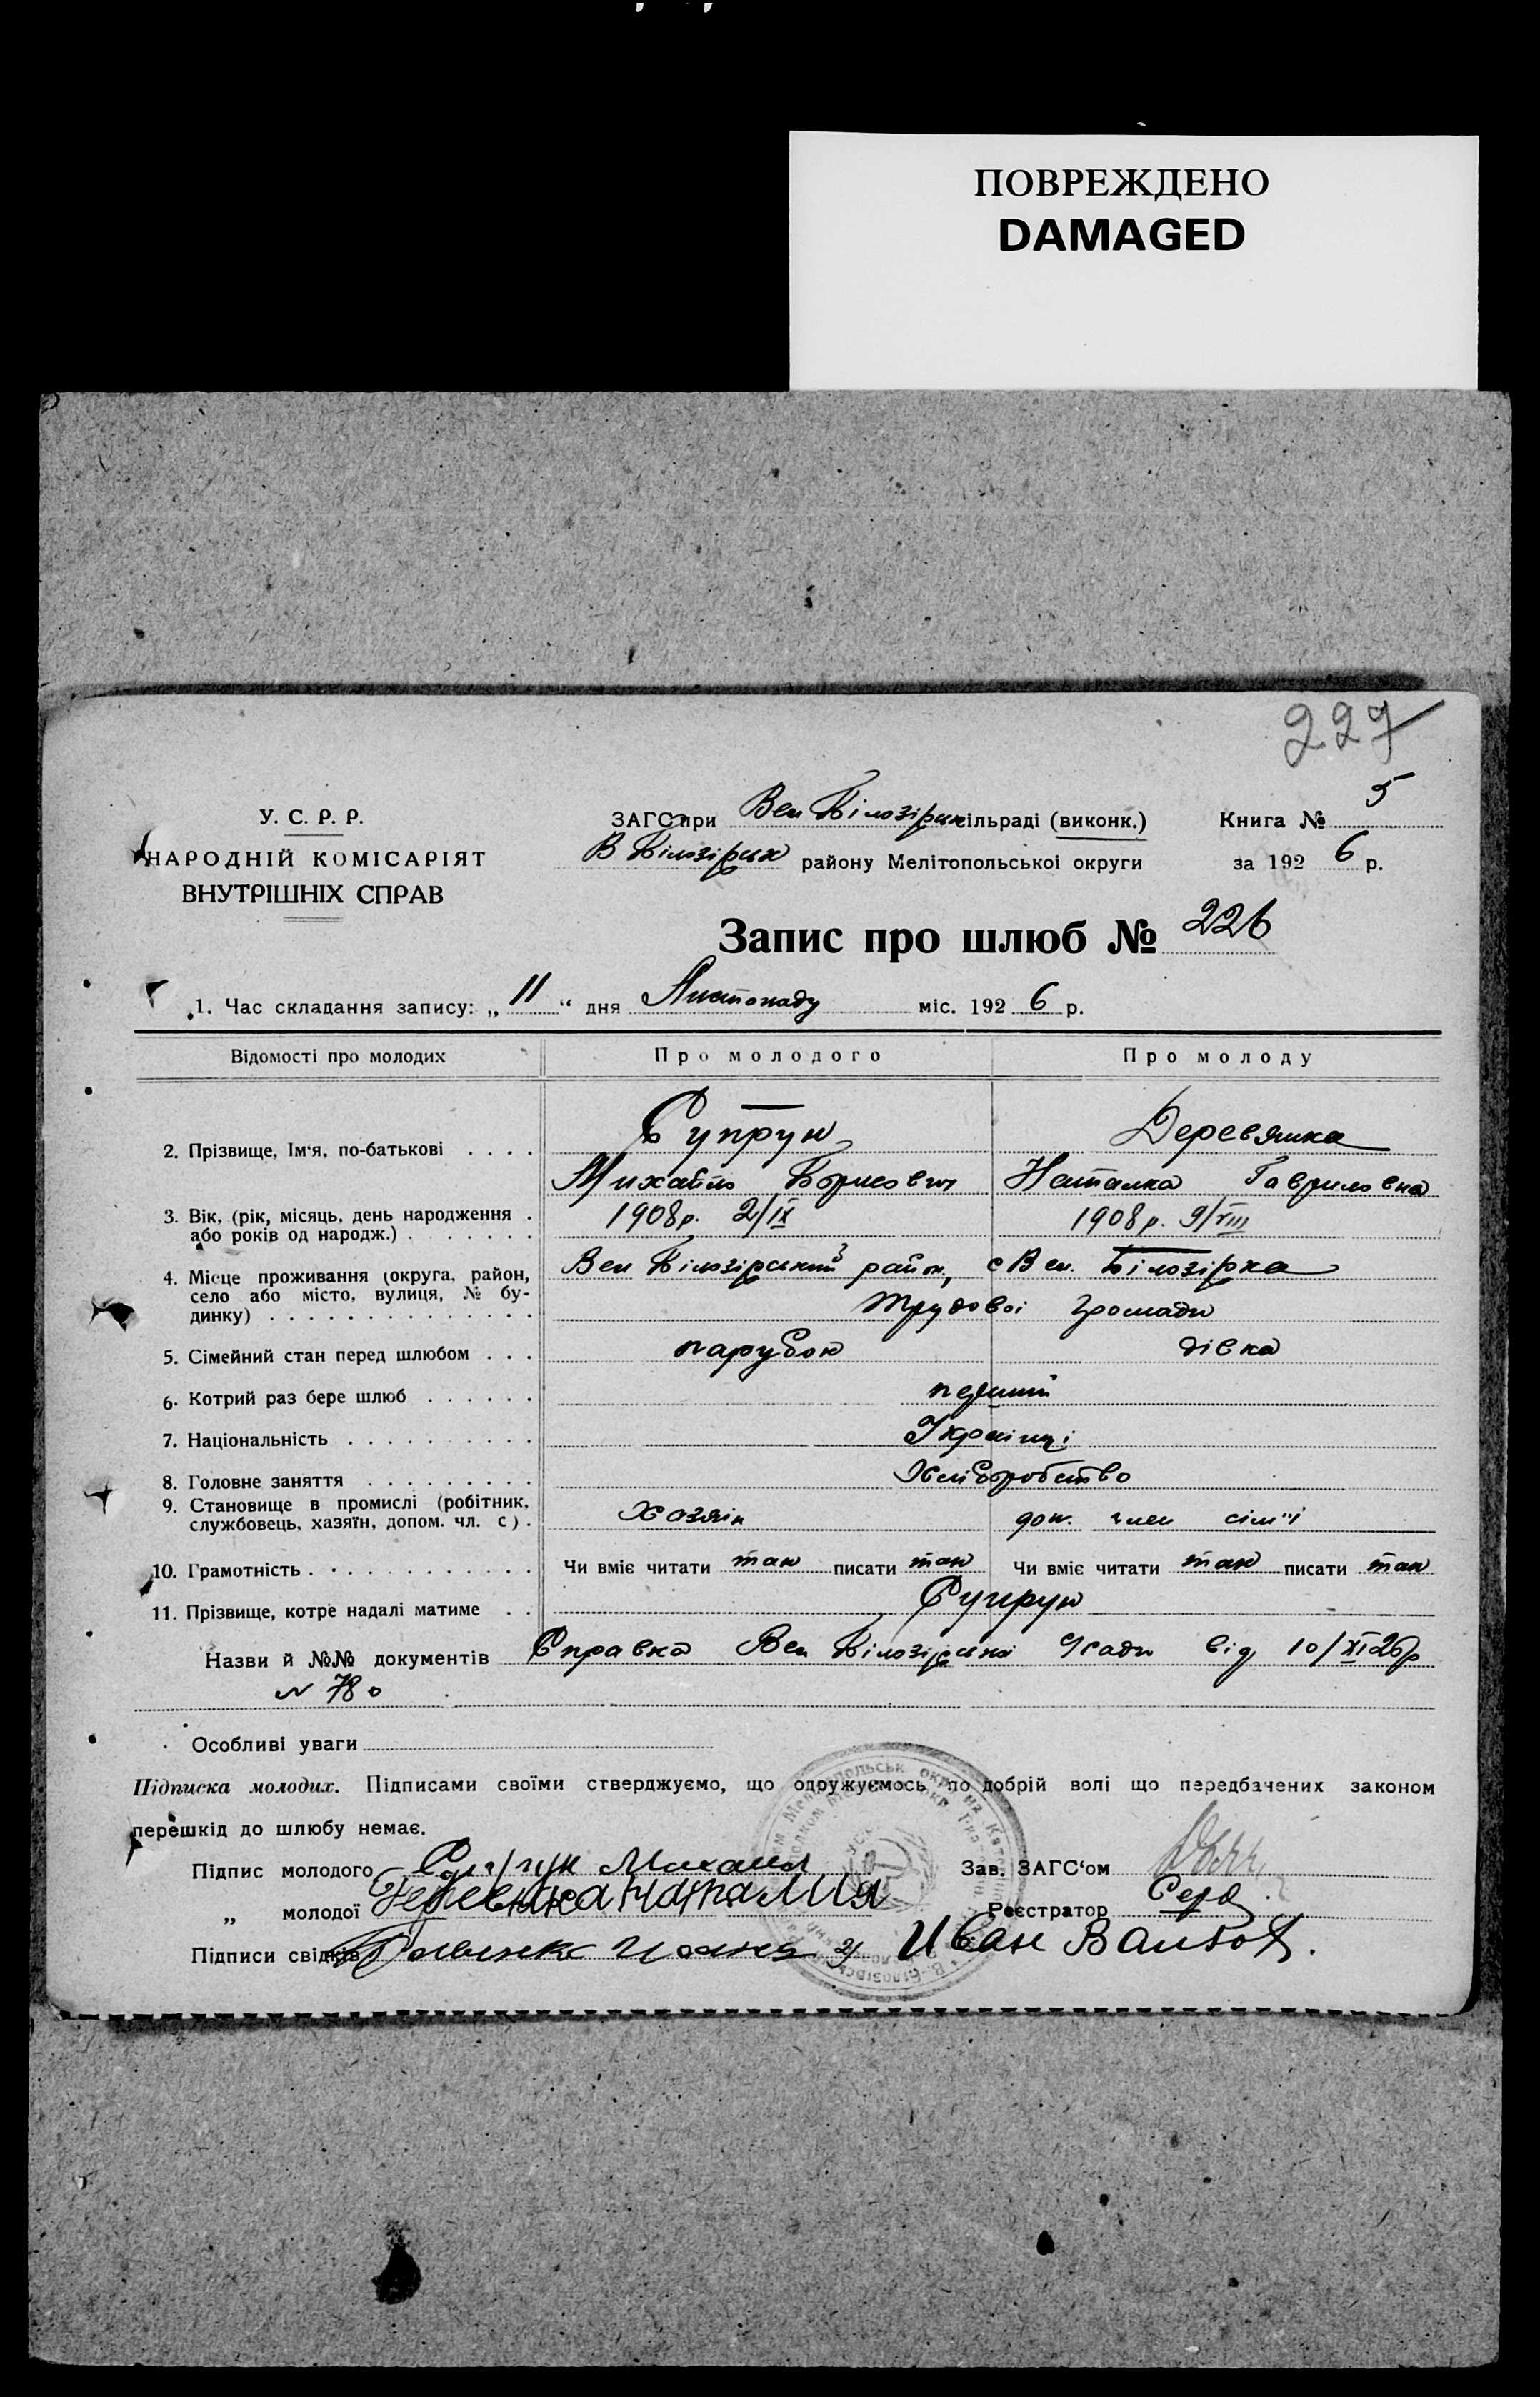 ПОВРЕЖДЕНО
DAMAGED
227
У. С. Р. Р.
НАРОДНІЙ КОМІСАРІЯТ
ВНУТРІШНІХ СПРАВ
ЗАГС при Вел Білозірск сільраді (виконк.) Книга № 5
В Білозірськ району Мелітопольської округи за 192 6 р.
Запис про шлюб № 226
1. Час складання запису: „ 11 “ дня Листопаду міс. 192 6 р.
Відомості про молодих Про молодого Про молоду
2. Прізвище, Ім‘я, по-батькові . . . . Супрун Деревянка
Михайло Борисович Наталка Гавриловна
3. Вік, (рік, місяць, день народження .
або років од народж.) . . . . . . . 1908 р. 2/IX 1908 р. 9/VIII
4. Місце проживання (округа, район,
село або місто, вулиця, № бу-
динку) . . . . . . . . . . . . . . Вел Білозірський район, с Вел. Білозірка
Трудової громади
5. Сімейний стан перед шлюбом . . . парубок дівка
6. Котрий раз бере шлюб . . . . . . перший
7. Національність . . . . . . . . . . Українці
8. Головне заняття . . . . . . . . . Хліборобство
9. Становище в промислі (робітник,
службовець, хазяїн, допом. чл. с) . Хазяін доп. член сім"ї
10. Грамотність . . . . . . . . . . . Чи вміє читати так писати так Чи вміє читати так писати так
11. Прізвище, котре надалі матиме . . Супрун
Назви й №№ документів Справка Вел Білозірської від 10/XI 26р
N 780
Особливі уваги
Підписка молодих. Підписами своїми стверджуємо, що одружуємось по добрій волі що передбачених законом
перешкід до шлюбу немає.
Підпис молодого Супрун Михаил Зав. ЗАГС‘ом
„ молодої Деревянка Наталия Реєстратор
Підписи свідків 2) Иван